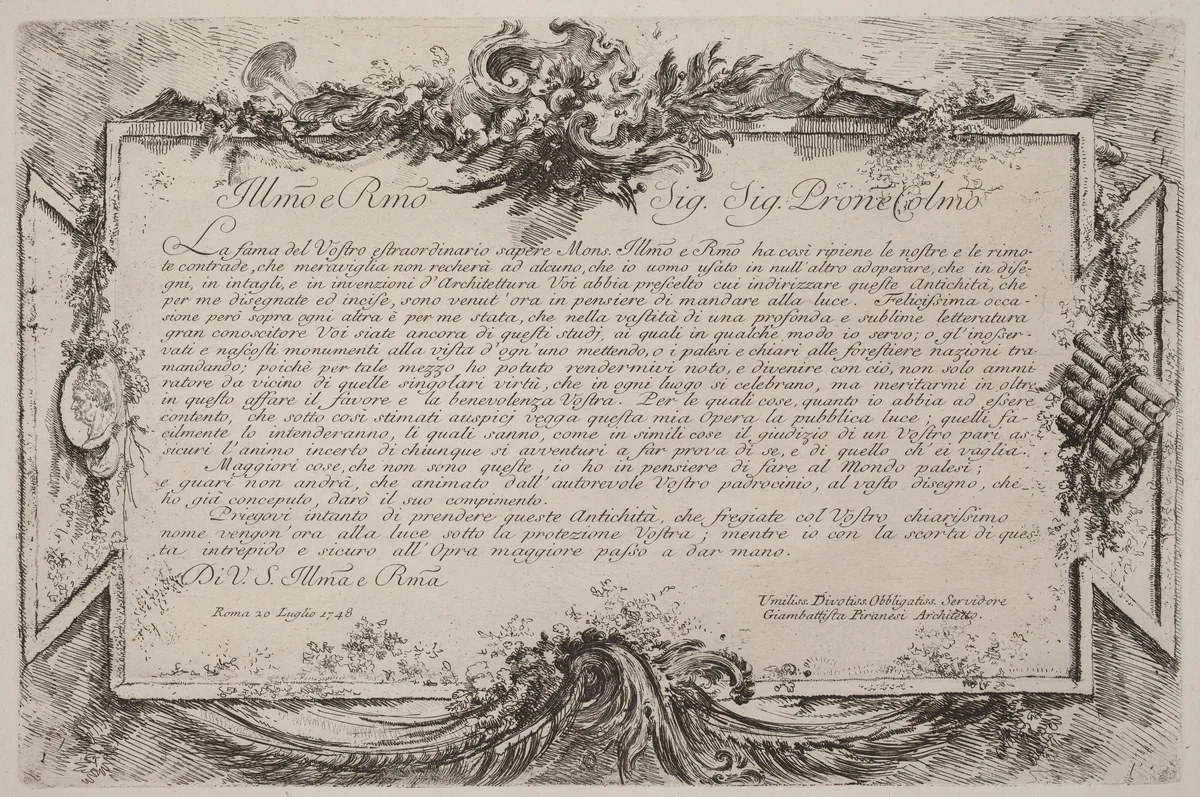 Illm̃o e Rm̃o Sig. Sig. Pron̄e Colm̃o
La fama del Vostro estraordinario sapere Mons. Illm̃o e Rm̃o ha così ripiene le nostre e le rimo-
te contrade, che meraviglia non recherà ad alcuno, che io uomo usato in null'altro adoperare, che in dise-
gni, in intagli, e in invenzioni d'Architettura Voi abbia prescelto cui indirizzare queste Antichità, che
per me disegnate ed incise, sono venut'ora in pensiere di mandare alla luce. Felicissima occa-
sione però sopra ogni altra è per me stata, che nella vastità di una profonda e sublime letteratura
gran conoscitore Voi siate ancora di questi studj, ai quali in qualche modo io servo; o gl'inosser-
vati e nascosti monumenti alla vista d'ogn'uno mettendo, o i palesi e chiari alle forestiere nazioni tra-
mandando; poichè per tale mezzo ho potuto rendermivi noto, e divenire con ciò, non solo ammi-
ratore da vicino di quelle singolari virtù, che in ogni luogo si celebrano, ma meritarmi in oltre
in questo affare il favore e la benevolenza Vostra. Per le quali cose, quanto io abbia ad essere
contento, che sotto così stimati auspicj vegga questa mia Opera la pubblica luce, quelli fa-
cilmente lo intenderanno, li quali sanno, come in simili cose il giudizio di un Vostro pari as-
sicuri l'animo incerto di chiunque si avventuri a far prova di se, e di quello ch'ei vaglia.
Maggiori cose, che non sono queste, io ho in pensiere di fare al Mondo palesi;
e guari non andrà, che animato dall'autorevole Vostro padrocinio, al vasto disegno, che
ho già conceputo, darò il suo compimento.
Priegovi intanto di prendere queste Antichità, che fregiate col Vostro chiarissimo
nome vengon'ora alla luce sotto la protezione Vostra; mentre io con la scorta di ques-
ta intrepido e sicuro all'Opra maggiore passo a dar mano.
Di V. S. Illm̃a e Rm̃a
Roma 20 Luglio 1748
Umiliss. Divotiss. Obbligatiss. Servidore
Giambattista Piranesi Architetto.